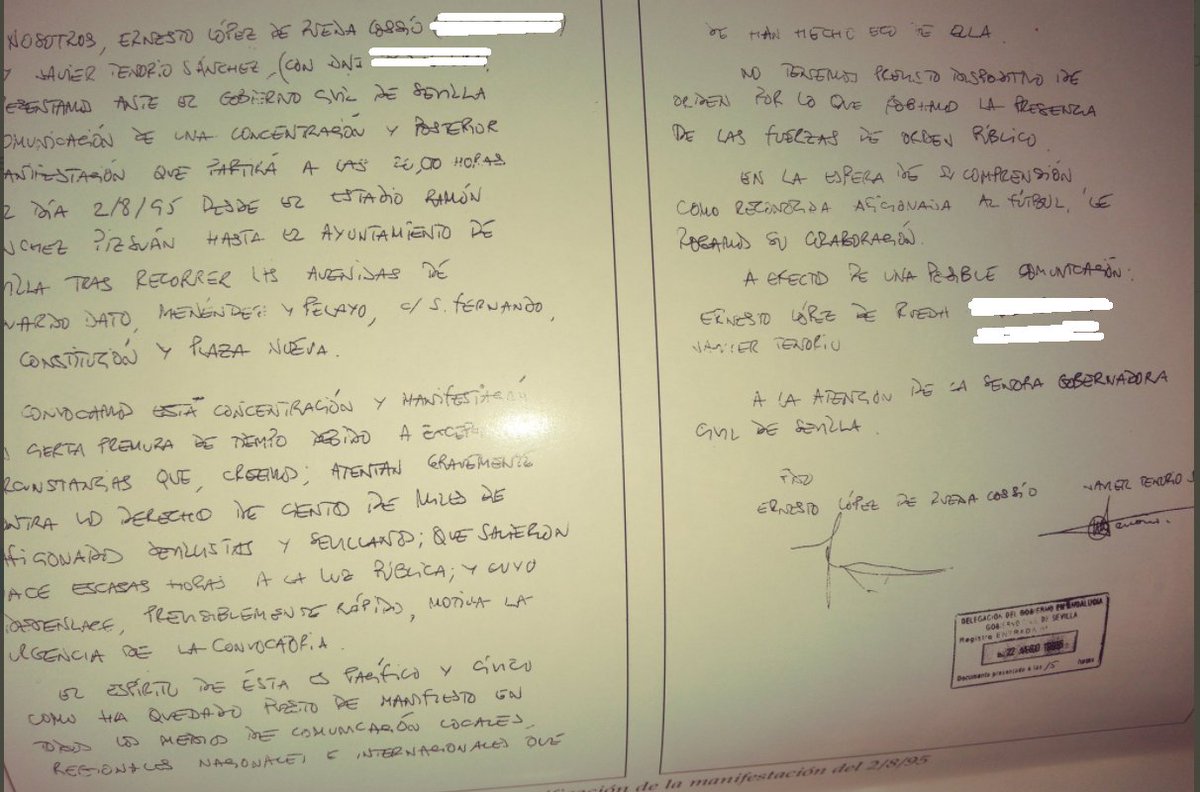 NOSOTROS, ERNESTO LÓPEZ DE RUEDA COSSÍO
Y JAVIER TENORIO SÁNCHEZ, (CON DNI
ESENTAMOS ANTE EL GOBIERNO CIVIL DE SEVILLA
OMUNICACIÓN DE UNA CONCENTRACIÓN Y POSTERIOR
ANIFESTACIÓN QUE PARTIRÁ A LAS 20,00 HORAS
EL DÍA 2/8/95 DESDE EL ESTADIO RAMÓN
NCHEZ PIZJUÁN HASTA EL AYUNTAMIENTO DE
ILLA TRAS RECORRER LAS AVENIDAS DE
UARDO DATO, MENÉNDEZ Y PELAYO, C/ S. FERNANDO,
CONSTITUCIÓN Y PLAZA NUEVA.
CONVOCAMOS ESTA CONCENTRACIÓN Y MANIFESTACIÓN
CIERTA PREMURA DE TIEMPO DEBIDO A EXCEP
RCUNSTANCIAS QUE, CREEMOS, ATENTAN GRAVEMENTE
ONTRA LOS DERECHOS DE CIENTOS DE MILES DE
AFICIONADOS SEVILLISTAS Y SEVILLANOS; QUE SALIERON
ACE ESCASAS HORAS A LA LUZ PÚBLICA; Y CUYO
DESENLACE, PREVISIBLEMENTE RÁPIDO, MOTIVA LA
URGENCIA DE LA CONVOCATORIA.
EL ESPÍRITU DE ÉSTA ES PACÍFICO Y CÍVICO
COMO HA QUEDADO PUESTO DE MANIFIESTO EN
TODOS LOS MEDIOS DE COMUNICACIÓN LOCALES,
REGIONALES NACIONALES E INTERNACIONALES QUE
SE HAN HECHO ECO DE ELLA.
NO TENEMOS PREVISTO DISPOSITIVO DE
ORDEN POR LO QUE ROGAMOS LA PRESENCIA
DE LAS FUERZAS DE ORDEN PÚBLICO.
EN LA ESPERA DE SU COMPRENSIÓN
COMO RECONOCIDA AFICIONADA AL FÚTBOL, LE
ROGAMOS SU COLABORACIÓN.
A EFECTO DE UNA POSIBLE COMUNICACIÓN:
ERNESTO LÓPEZ DE RUEDA
JAVIER TENORIO
A LA ATENCIÓN DE LA SEÑORA GOBERNADORA
CIVIL DE SEVILLA.
FDO
ERNESTO LÓPEZ DE RUEDA COSSÍO JAVIER TENORIO S
DELEGACIÓN DEL GOBIERNO EN ANDALUCÍA
GOBIERNO CIVIL DE SEVILLA
Registro ENTRADA
Documento presentado a las 15 horas
ificación de la manifestación del 2/8/95